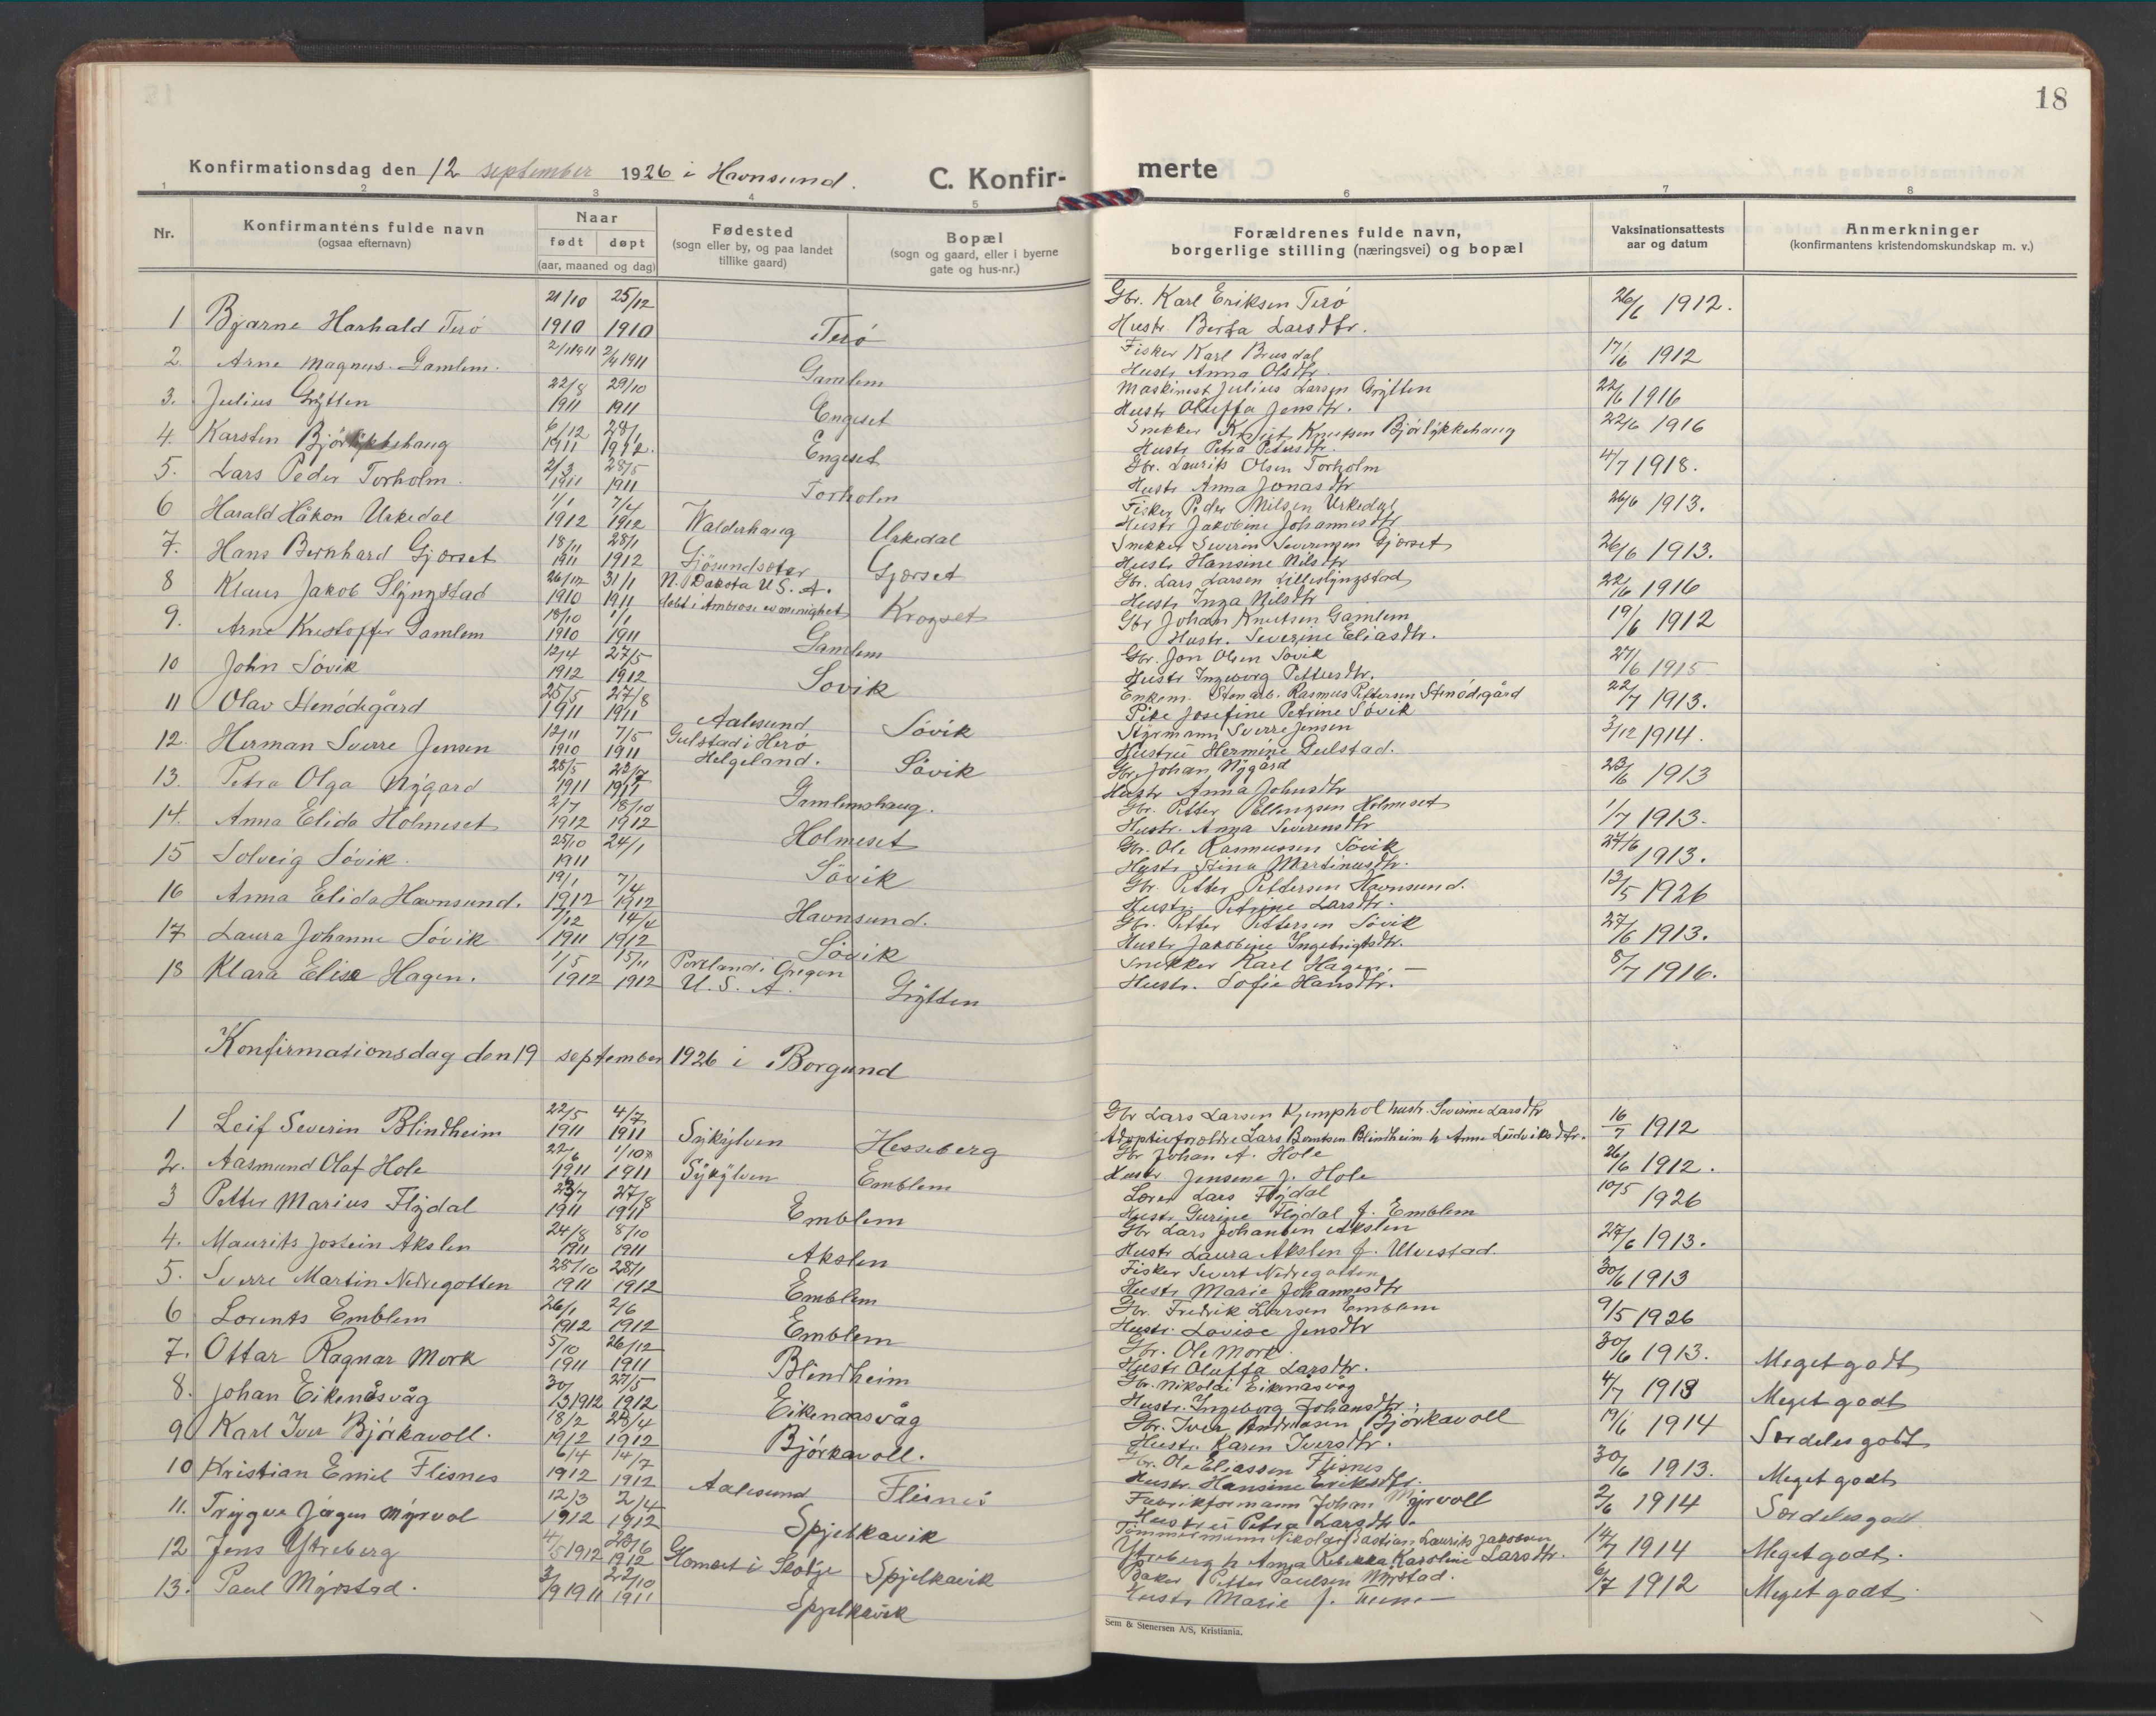 18
Konfirmationsdag den 12 september 1926 i Havnsund.
C. Konfir- merte
1 2 3 4 5 6 7 8
Nr.
Konfirmantens fulde navn
(ogsaa efternavn)
Naar
født døpt
(aar, maaned og dag)
Fødested
(sogn eller by, og paa landet
tillike gaard)
Bopæl
(sogn og gaard, eller i byerne
gate og hus-nr.)
Forældrenes fulde navn,
borgerlige stilling (næringsvei) og bopæl
Vaksinationsattests
aar og datum
Anmerkninger
(konfirmantens kristendomskundskap m. v.)
1 Bjarne Harhald Terö 21/10 1910 25/12 1910 Terö Gbr. Karl Eriksen Terö
Hustr. Berta Larsdtr. 26/6 1912.
2. Arne Magnus Gamlem. 2/1 1911 2/4 1911 Gamlem Fisker Karl Brusdal
Hustr. Anna Olsdtr. 17/6 1912
3. Julius Grÿtten 22/8 1911 29/10 1911 Engeset Maskinist Julius Larsen Grÿtten
Hustr Oluffa Jensdtr. 22/6 1916
4. Karsten Bjørlÿkkehaug 6/12 1911 28/1 1912. Engeset Snekker Knut Knutsen Bjørlÿkkehaug
Hustr Petra Petersdtr. 22/6 1916
5. Lars Peder Torholm. 2/3 1911 28/5 1911 Torholm Gbr. Laurits Olsen Torholm
Hustr Anna Jonasdtr 4/7 1918.
6 Harald Håkon Urkedal 1/1 1912 7/4 1912 Walderhaug Urkedal Fisker Peder Nilsen Urkedal
Hustr Jakobine Johannesdtr 26/6 1913.
7. Hans Bernhard Gjærset 18/11 1911 28/1 1912 Sjösundsæter Gjærset Snekker Severin Severinsen Gjærset
Hustr Hansine Nilsdtr 26/6 1913.
8 Klaus Jakob Slÿngstad 26/12 1910 31/1 1911 N. Dakota U.S.A.
döbt i Ambrose ev menighet Krogset Gbr. Lars Larsen Lilleslÿngstad
Hustr Inga Nilsdtr 22/6 1916
9. Arne Kristoffer Gamlem 18/10 1910 1/1 1911 Gamlem Gbr Johan Knutsen Gamlem
Hustr. Severine Eliasdtr. 19/6 1912
10 John Sövik 12/4 1912 27/5 1912 Sövik Gbr. Jon Olsen Sövik
Hustr Ingeborg Pettersdtr. 27/6 1915
11 Olav Stenödegård 25/5 1911 27/8 1911 Aalesund Sövik Enkem. Stenarb. Rasmus Pettersen Stenödegård
Pike Josefine Petrine Sövik 22/7 1913.
12. Herman Sverre Jensen 12/11 1910 7/5 1911 Gulstad i Herö
Helgeland. Sövik Stÿrmann Sverre Jensen
Hustru Hermine Gulstad. 3/12 1914.
13. Petra Olga Nÿgard 28/5 1911 23/7 1911 Gamlemshaug. Gbr. Johan Nÿgård
Hustr Anna Johnsdtr 23/6 1913
14. Anna Elida Holmeset 2/7 1912 18/10 1912 Holmeset Gbr. Petter Ellingsen Holmeset
Hustr. Anna Severinsdtr 1/7 1913.
15 Solveig Sövik. 25/10 1911 24/1 Sövik Gbr. Ole Rasmussen Sövik
Hustr Stina Martinusdtr. 27/6 1913.
16 Anna Elida Havnsund. 19/1 1912 7/4 1912 Havnsund. Gbr. Petter Pettersen Havnsund.
Hustr. Petrine Larsdtr. 13/5 1926
17 Laura Johanne Sövik 7/12 1911 14/4 1912 Sövik Gbr. Petter Pettersen Sövik
Hustr Jakobine Ingebrigtsdtr. 27/6 1913.
18 Klara Elise Hagen. 1/5 1912 15/11 1912 Portland i Oregon
U. S. A. Grÿtten Snekker Karl Hagen. —
Hustr. Sofie Hansdtr. 8/7 1916.
Konfirmationsdag den 19 september 1926 i Borgund
1 Leif Severin Blindheim 22/5 1911 4/7 1911 Sÿkÿlven Hesseberg Gbr Lars Larsen Kjemphol hustr. Severine Larsdtr
Adoptivforældre Lars Berntsen Blindheim h Anne Ludviksdtr. 16/7 1912
2. Aasmund Olaf Hole 22/6 1911 1/10 1911 Sÿkÿlven Emblem Gbr Johan A. Hole
Hustr Jensene J. Hole 26/6 1912.
3 Petter Marius Fløjdal 23/7 1911 27/8 1911 Emblem Lærer Lars Fløjdal
Hustr Gurine Fløjdal f. Emblem 10/5 1926
4. Maurits Jostein Akslen 24/8 1911 8/10 1911 Akslen Gbr Lars Johansen Akslen
Hustr Laura Akslen f. Ulvestad. 27/6 1913.
5. Sverre Martin Nedregotten 28/10 1911 28/1 1912 Emblem Fisker Sivert Nedregotten
Hustr Marie Johannesdtr 30/6 1913
6 Lorents Emblem 26/1 1912 2/6 1912 Emblem Gbr. Fredrik Larsen Emblem
Hustr. Lovise Jensdtr 9/5 1926
7. Ottar Ragnar Mork 5/10 1911 26/12 1911 Blindheim Gbr. Ole Mork.
Hustr Oluffa Larsdtr. 30/6 1913. Meget godt
8. Johan Eikenåsvåg 30/3 1912 27/5 1912 Eikenaasvåg Gbr. Nikolai Eikenåsvåg
Hustr. Ingeborg Johansdtr. 4/7 1913 Meget godt
9 Karl Iver Björkavoll. 18/2 1912 28/4 1912 Björkavoll. Gbr. Iver Andreasen Björkavoll
Hustr. Karen Iversdtr. 19/6 1914 Særdeles godt
10 Kristian Emil Flisnes 6/4 1912 14/7 1912 Aalesund Flisnes Gbr. Ole Eliassen Flisnes
Hustr Hansine Eriksdtr. 30/6 1913. Meget godt
11. Trÿgve Jörgen Mÿrvol 12/3 1912 2/4 1912 Spjelkavik Fabrikformann Johan Mÿrvoll
Hustru Petra Larsdtr. 2/6 1914 Særdeles godt
12 Jens Ytreberg 4/5 1912 23/6 1912 Glomset i Skodje Spjelkavik Tømmermann Nikolai Bastian Laurits Jakobsen
Ytreberg h Anna Rebekka Karoline Larsdtr. 14/7 1914 Meget godt.
13. Paul Mÿrstad. 3/9 1911 22/10 1911 Spjelkavik Baker Petter Paulsen Mÿrstad.
Hustr Marie f. 6/7 1912 Meget godt.
Sem & Stenersen A/S, Kristiania.